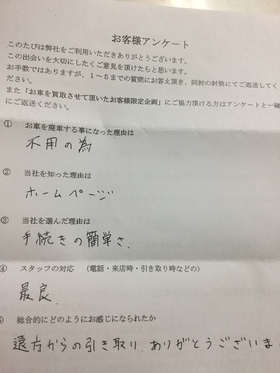 お客様アンケート
このたびは弊社をご利用いただきありがとうございます。
この出会いを大切にしたくご意見を頂けたらと思います。
お手数ではありますが、1～5までの質問にお答え頂き、同封の封筒にてご返送してく
ださい。
また「お車を買取させて頂いたお客様限定企画」にご協力頂ける方はアンケートと一緒
にご返送ください。
① お車を廃車する事になった理由は
不用の為
② 当社を知った理由は
ホームページ
③ 当社を選んだ理由は
手続きの簡単さ.
④ スタッフの対応 (電話・来店時・引き取り時などの)
最良.
総合的にどのようにお感じになられたか
遠方からの引き取り、ありがとうございま